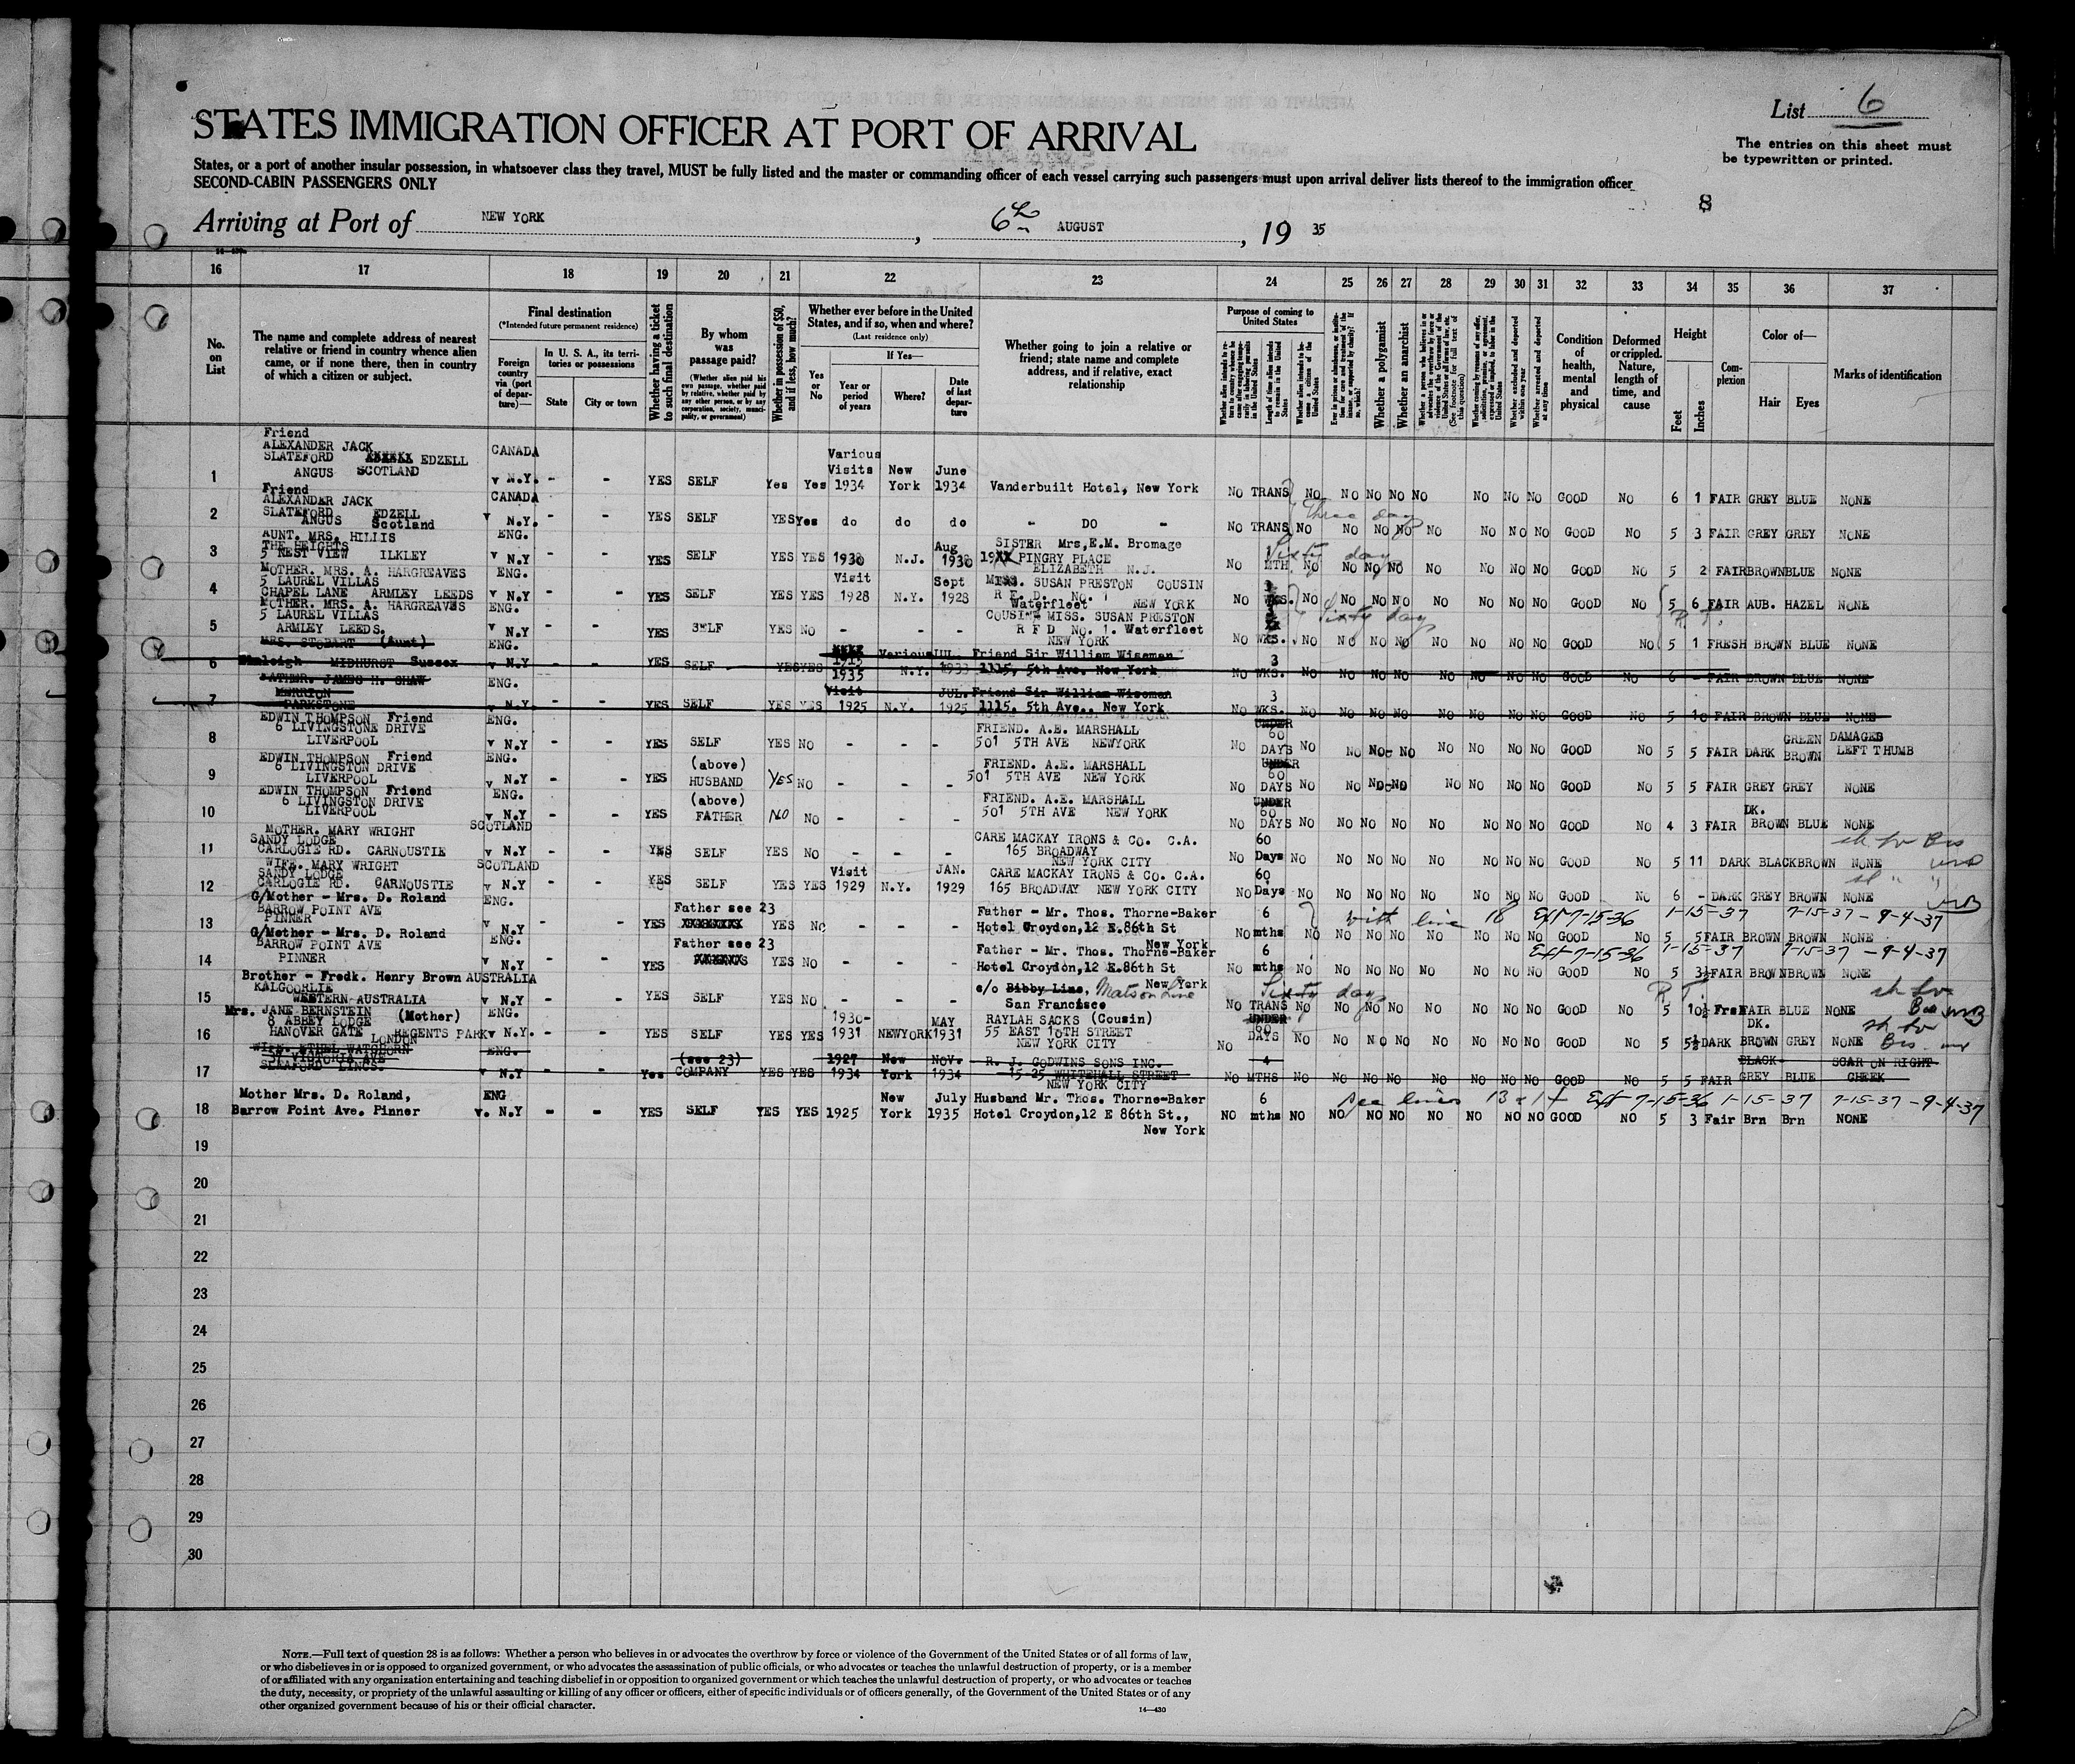 List 6
The entries on this sheet must
be typewritten or printed.
STATES IMMIGRATION OFFICER AT PORT OF ARRIVAL
States, or a port of another insular possession, in whatsoever class they travel, MUST be fully listed and the master or commanding officer of each vessel carrying such passengers must upon arrival deliver lists thereof to the immigration officer
SECOND-CABIN PASSENGERS ONLY
8
Arriving at Port of NEW YORK, 6th AUGUST, 19 35
16 17 18 19 20 21 22 23 24 25 26 27 28 29 30 31 32 33 34 35 36 37
No. on List
The name and complete address of nearest relative or friend in country whence alien came, or if none there, then in country of which a citizen or subject.
Final destination
(*Intended future permanent residence)
Foreign country via (port of departure)—
In U. S. A., its territories or possessions
State
City or town
Whether having a ticket to such final destination
By whom was passage paid?
(Whether alien paid his own passage, whether paid by relative, whether paid by any other person, or by any corporation, society, municipality, or government)
Whether in possession of $50, and if less, how much?
Whether ever before in the United States, and if so, when and where?
(Last residence only)
Yes or No
If Yes—
Year or period of years
Where?
Date of last departure
Whether going to join a relative or friend; state name and complete address, and if relative, exact relationship
Purpose of coming to United States
Length of time alien intends to remain in the United States
Whether alien intends to become a citizen of the United States
Whether a polygamist
Whether an anarchist
Whether excluded and deported within one year
Whether arrested and deported at any time
Condition of health, mental and physical
Deformed or crippled. Nature, length of time, and cause
Height
Feet
Inches
Complexion
Color of—
Hair
Eyes
Marks of identification
1 Friend ALEXANDER JACK SLATEFORD EDZELL ANGUS SCOTLAND CANADA v N.Y. - - YES SELF Yes Yes Various Visits 1934 New York June 1934 Vanderbuilt Hotel, New York NO TRANS NO NO NO NO NO NO NO NO GOOD NO 6 1 FAIR GREY BLUE NONE
2 Friend ALEXANDER JACK SLATEFORD EDZELL ANGUS Scotland CANADA v N.Y. - - YES SELF YES Yes do do do - DO - NO TRANS NO Three days NO NO NO NO NO NO NO GOOD NO 5 3 FAIR GREY GREY NONE
3 AUNT. MRS. HILLIS THE HEIGHTS 5 NEST VIEW ILKLEY ENG. v N.Y - - YES SELF YES YES 1930 N.J. Aug 1930 SISTER Mrs,E.M. Bromage PINGRY PLACE ELIZABETH N.J. NO MTH. NO Sixty days NO NO NO NO NO NO NO GOOD NO 5 2 FAIR BROWN BLUE NONE
4 MOTHER. MRS. A. HARGREAVES 5 LAUREL VILLAS CHAPEL LANE ARMLEY LEEDS ENG. v N.Y - - YES SELF YES YES Visit 1928 N.Y. Sept 1928 MISS. SUSAN PRESTON COUSIN R F D. No. 1 Waterfleet NEW YORK NO WKS. NO NO NO NO NO NO NO NO GOOD NO 5 6 FAIR AUB. HAZEL NONE
5 MOTHER. MRS. A. HARGREAVES 5 LAUREL VILLAS ARMLEY LEEDS. ENG. v N.Y - - YES SELF YES NO - - - COUSIN MISS. SUSAN PRESTON R F D No. 1. Waterfleet NEW YORK NO WKS. NO Sixty days NO NO NO NO NO NO NO GOOD NO R.T. 5 1 FRESH BROWN BLUE NONE
6 MRS. STOBART (Aunt) MIDHURST Sussex ENG. v N.Y - - YES SELF YES YES 1915 1935 Various N.Y. JUL. 1933 Friend Sir William Wiseman 1115, 5th Ave. New York NO 3 WKS. NO NO NO NO NO NO NO NO GOOD NO 6 - FAIR BROWN BLUE NONE
7 FATHER. JAMES H. SHAW MERRION PARKSTONE ENG. v N.Y. - - YES SELF YES YES Visit 1925 N.Y. JUL. 1925 Friend Sir William Wiseman 1115, 5th Ave., New York NO 3 WKS. NO NO NO NO NO NO NO NO GOOD NO 5 10 FAIR BROWN BLUE NONE
8 EDWIN THOMPSON Friend 6 LIVINGSTONE DRIVE LIVERPOOL ENG. v N.Y - - YES SELF YES NO - - - FRIEND. A.E. MARSHALL 501 5TH AVE NEWYORK NO UNDER 60 DAYS NO NO NO NO NO NO NO NO GOOD NO 5 5 FAIR DARK GREEN BROWN DAMAGED LEFT THUMB
9 EDWIN THOMPSON Friend 6 LIVINGSTON DRIVE LIVERPOOL ENG. v N.Y - - YES (above) HUSBAND YES NO - - - FRIEND. A.E. MARSHALL 501 5TH AVE NEW YORK NO UNDER 60 DAYS NO NO NO NO NO NO NO NO GOOD NO 5 5 FAIR GREY GREY NONE
10 EDWIN THOMPSON Friend 6 LIVINGSTON DRIVE LIVERPOOL ENG. v N.Y - - YES (above) FATHER NO NO - - - FRIEND. A.E. MARSHALL 501 5TH AVE NEW YORK NO UNDER 60 DAYS NO NO NO NO NO NO NO NO GOOD NO 4 3 FAIR DK. BROWN BLUE NONE
11 MOTHER. MARY WRIGHT SANDY LODGE CARLOGIE RD. CARNOUSTIE SCOTLAND v N.Y - - YES SELF YES NO - - - CARE MACKAY IRONS & Co. C.A. 165 BROADWAY NEW YORK CITY NO 60 Days NO NO NO NO NO NO NO NO GOOD NO 5 11 DARK BLACK BROWN NONE
12 WIFE. MARY WRIGHT SANDY LODGE CARLOGIE RD. CARNOUSTIE SCOTLAND v N.Y - - YES SELF YES YES Visit 1929 N.Y. JAN. 1929 CARE MACKAY IRONS & CO. C.A. 165 BROADWAY NEW YORK CITY NO 60 Days NO NO NO NO NO NO NO NO GOOD NO 6 - DARK GREY BROWN NONE
13 G/Mother - Mrs. D. Roland BARROW POINT AVE PINNER ENG. v N.Y - - YES Father see 23 YES NO - - - Father - Mr. Thos. Thorne-Baker Hotel Croydon,12 E.86th St New York NO 6 mths NO with line 18 Ext 7-15-36 1-15-37 7-15-37 - 9-4-37 NO NO NO NO NO NO NO GOOD NO 5 5 FAIR BROWN BROWN NONE
14 G/Mother - Mrs. D. Roland BARROW POINT AVE PINNER ENG. v N.Y - - YES Father see 23 YES NO - - - Father - Mr. Thos. Thorne-Baker Hotel Croydon,12 E.86th St New York NO 6 mths NO Ext 7-15-36 1-15-37 7-15-37 - 9-4-37 NO NO NO NO NO NO NO GOOD NO 5 3½ FAIR BROWN BROWN NONE
15 Brother - Fredk. Henry Brown KALGOORLIE WESTERN AUSTRALIA AUSTRALIA v N.Y - - YES SELF YES NO - - - c/o Bibby Line, Matson Line San Francisco NO TRANS NO Sixty days NO NO NO NO NO NO NO GOOD NO R.T. 5 10½ Fresh FAIR BLUE NONE
16 Mrs. JANE BERNSTEIN (Mother) 8 ABBEY LODGE HANOVER GATE REGENTS PARK LONDON ENG. v N.Y. - - YES SELF YES YES 1930-1931 NEWYORK MAY 1931 RAYLAH SACKS (Cousin) 55 EAST 10TH STREET NEW YORK CITY NO UNDER 60 DAYS NO NO NO NO NO NO NO NO GOOD NO 5 5½ DARK DK. BROWN GREY NONE
17 WIFE. ETHEL WATSHORN 51 VICTORIA AVE SLEAFORD LINCS. ENG. v N.Y - - Yes (see 23) COMPANY YES YES 1927 1934 New York NOV. 1934 R. J. GODWINS SONS INC. 15-25 WHITEHALL STREET NEW YORK CITY NO 4 MTHS NO NO NO NO NO NO NO NO GOOD NO 5 5 FAIR BLACK GREY BLUE SCAR ON RIGHT CHEEK
18 Mother Mrs. D. Roland, Barrow Point Ave. Pinner ENG v. N.Y - - YES SELF YES YES 1925 New York July 1935 Husband Mr. Thos. Thorne-Baker Hotel Croydon,12 E 86th St., New York NO 6 mths NO see lines 13 & 14 Ext 7-15-36 1-15-37 7-15-37 - 9-4-37 NO NO NO NO NO NO NO GOOD NO 5 3 Fair Brn Brn NONE
19
20
21
22
23
24
25
26
27
28
29
30
NOTE.—Full text of question 28 is as follows: Whether a person who believes in or advocates the overthrow by force or violence of the Government of the United States or of all forms of law,
or who disbelieves in or is opposed to organized government, or who advocates the assassination of public officials, or who advocates or teaches the unlawful destruction of property, or is a member
of or affiliated with any organization entertaining and teaching disbelief in or opposition to organized government or which teaches the unlawful destruction of property, or who advocates or teaches
the duty, necessity, or propriety of the unlawful assaulting or killing of any officer or officers, either of specific individuals or of officers generally, of the Government of the United States or of any
other organized government because of his or their official character.
14—430